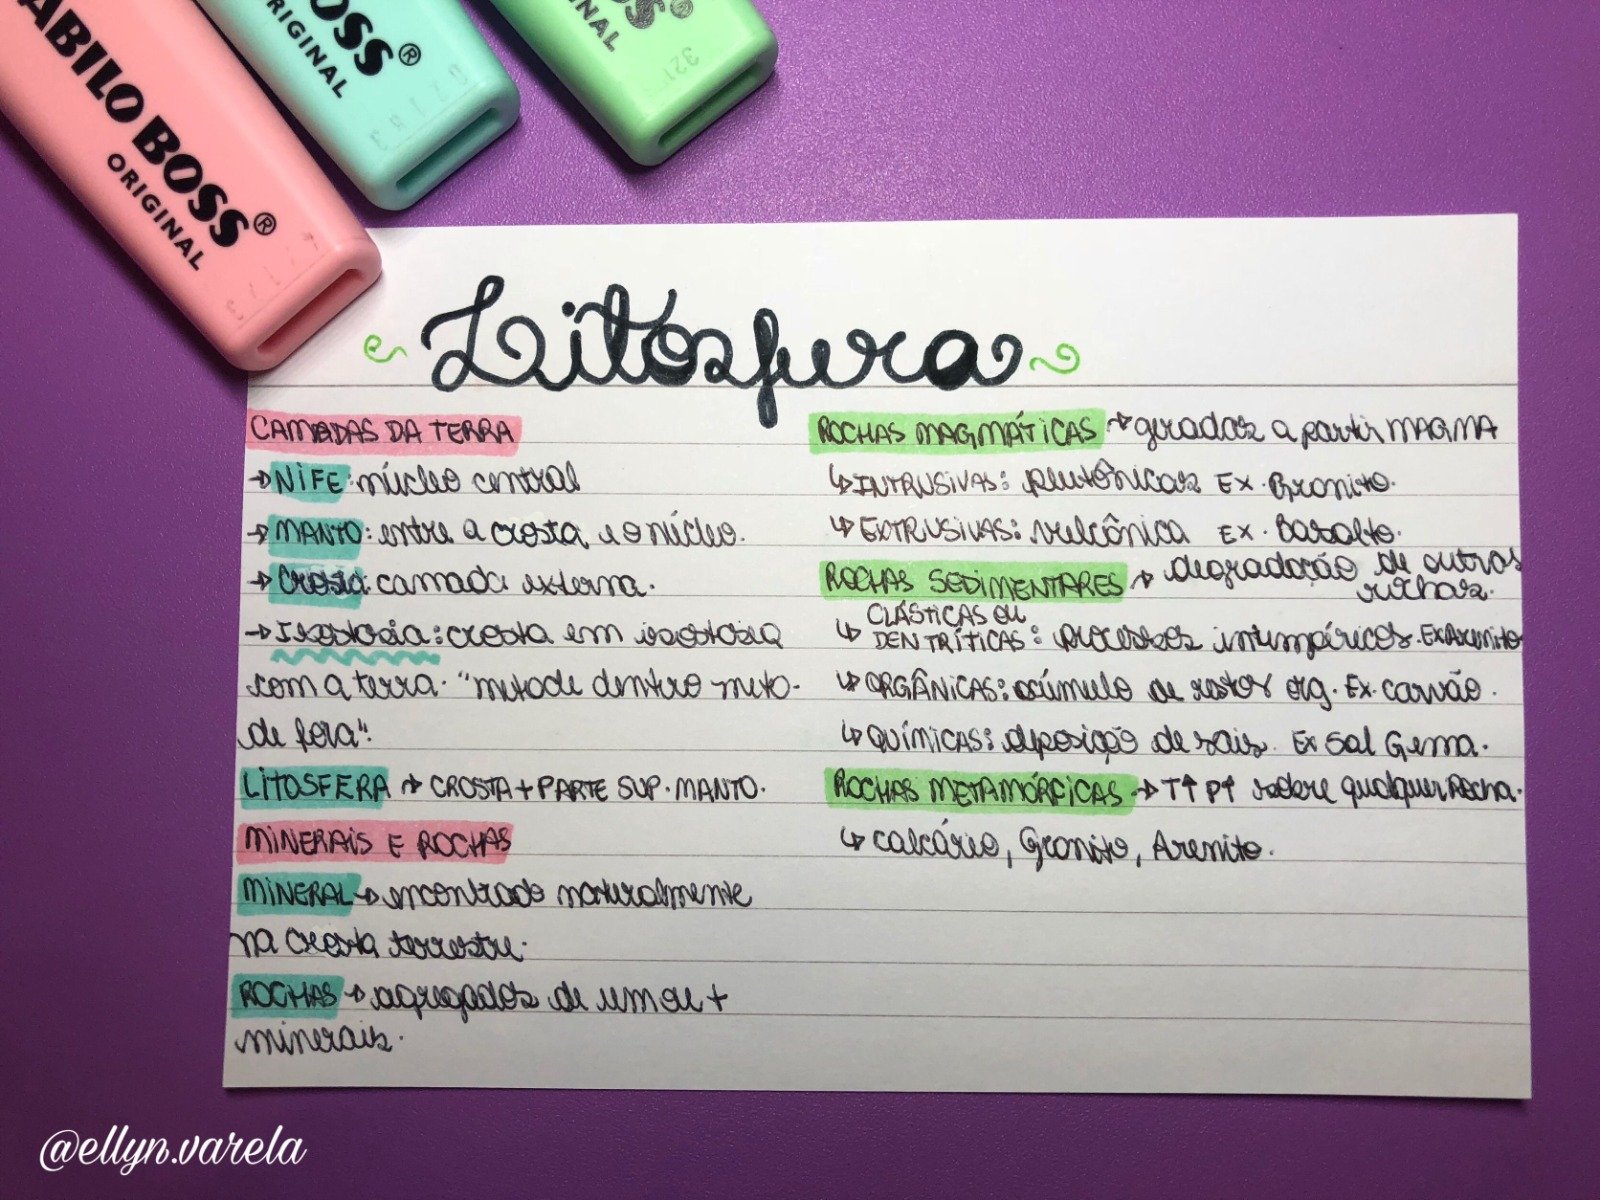 ABILO BOSS®
ORIGINAL
OSS®
RIGINAL
INAL
Litosfera
CAMADAS DA TERRA
→ NIFE: núcleo central
→ MANTO: entre a crosta e o núcleo.
→ Crosta camada externa.
→ Isostasia: crosta em isostasia
com a terra. "metade dentro meta-
de fora".
LITOSFERA → CROSTA + PARTE SUP. MANTO.
MINERAIS E ROCHAS
MINERAL → encontrado naturalmente
na crosta terrestre.
ROCHAS → agregados de um ou +
minerais.
ROCHAS MAGMÁTICAS → geradas a partir MAGMA
↳ INTRUSIVAS: plutônicas Ex. Granito.
↳ EXTRUSIVAS: vulcânica Ex. Basalto.
ROCHAS SEDIMENTARES → degradação de outras
rochas.
↳ CLÁSTICAS OU
DENTRÍTICAS: processos intempéricos. Ex Arenito
↳ ORGÂNICAS: acúmulo de restos org. Ex. carvão.
↳ QUÍMICAS: deposição de sais. Ex Sal Gema.
ROCHAS METAMÓRFICAS → T↑ P↑ sobre qualquer Rocha.
↳ Calcário, Granito, Arenito.
@ellyn.varela